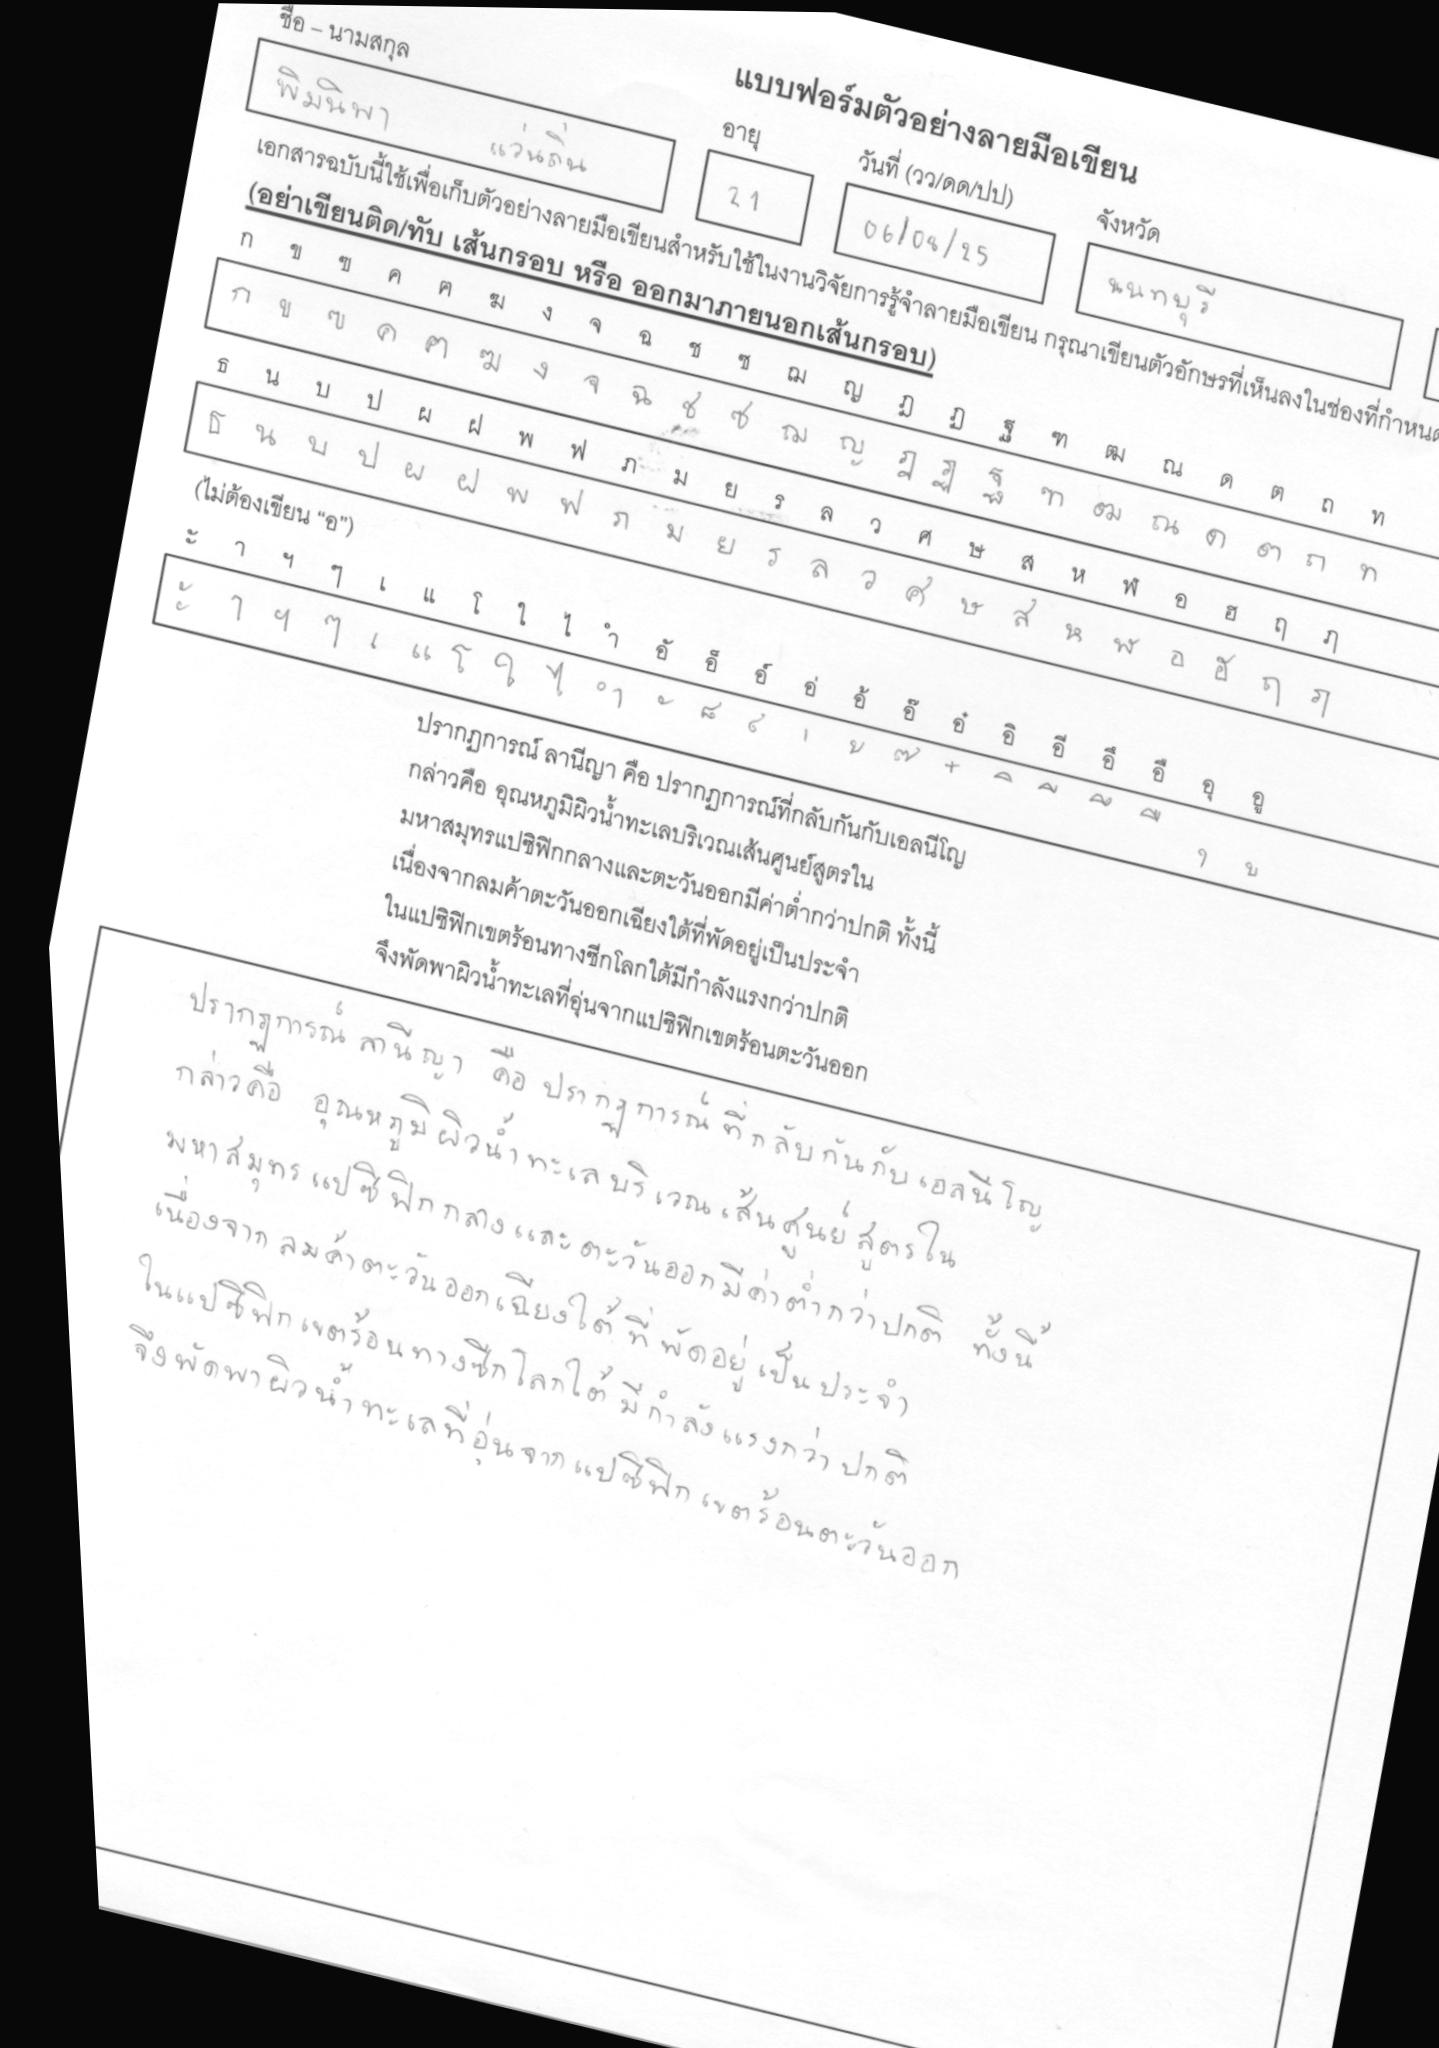 แบบฟอร์มตัวอย่างลายมือเขียน
ชื่อ – นามสกุล อายุ วันที่ (วว/ดด/ปป) จังหวัด
พิมนิพา แว่นถิ่น 21 06/08/25 นนทบุรี
เอกสารฉบับนี้ใช้เพื่อเก็บตัวอย่างลายมือเขียนสำหรับใช้ในงานวิจัยการรู้จำลายมือเขียน กรุณาเขียนตัวอักษรที่เห็นลงในช่องที่กำหนด
(อย่าเขียนติด/ทับ เส้นกรอบ หรือ ออกมาภายนอกเส้นกรอบ)
ก ข ฃ ค ฅ ฆ ง จ ฉ ช ซ ฌ ญ ฎ ฏ ฐ ฑ ฒ ณ ด ต ถ ท
ก ข ฃ ค ฅ ฆ ง จ ฉ ช ซ ฌ ญ ฎ ฏ ฐ ฑ ฒ ณ ด ต ถ ท
ธ น บ ป ผ ฝ พ ฟ ภ ม ย ร ล ว ศ ษ ส ห ฬ อ ฮ ฤ ฦ
ธ น บ ป ผ ฝ พ ฟ ภ ม ย ร ล ว ศ ษ ส ห ฬ อ ฮ ฤ ฦ
(ไม่ต้องเขียน “อ”)
ะ า ฯ ๆ เ แ โ ใ ไ ำ อั อ็ อ์ อ่ อ้ อ๊ อ๋ อิ อี อึ อื อุ อู
ะ า ฯ ๆ เ แ โ ใ ไ ำ ั ็ ์ ่ ้ ๊ ๋ ิ ี ึ ื ุ ู
ปรากฏการณ์ ลานีญา คือ ปรากฏการณ์ที่กลับกันกับเอลนีโญ
กล่าวคือ อุณหภูมิผิวน้ำทะเลบริเวณเส้นศูนย์สูตรใน
มหาสมุทรแปซิฟิกกลางและตะวันออกมีค่าต่ำกว่าปกติ ทั้งนี้
เนื่องจากลมค้าตะวันออกเฉียงใต้ที่พัดอยู่เป็นประจำ
ในแปซิฟิกเขตร้อนทางซีกโลกใต้มีกำลังแรงกว่าปกติ
จึงพัดพาผิวน้ำทะเลที่อุ่นจากแปซิฟิกเขตร้อนตะวันออก
ปรากฏการณ์ ลานีญา คือ ปรากฏการณ์ ที่กลับกันกับเอลนีโญ
กล่าวคือ อุณหภูมิผิวน้ำทะเลบริเวณเส้นศูนย์สูตรใน
มหาสมุทรแปซิฟิกกลางและตะวันออกมีค่าต่ำกว่าปกติ ทั้งนี้
เนื่องจากลมค้าตะวันออกเฉียงใต้ที่พัดอยู่เป็นประจำ
ในแปซิฟิกเขตร้อนทางซีกโลกใต้มีกำลังแรงกว่าปกติ
จึงพัดพาผิวน้ำทะเลที่อุ่นจากแปซิฟิกเขตร้อนตะวันออก